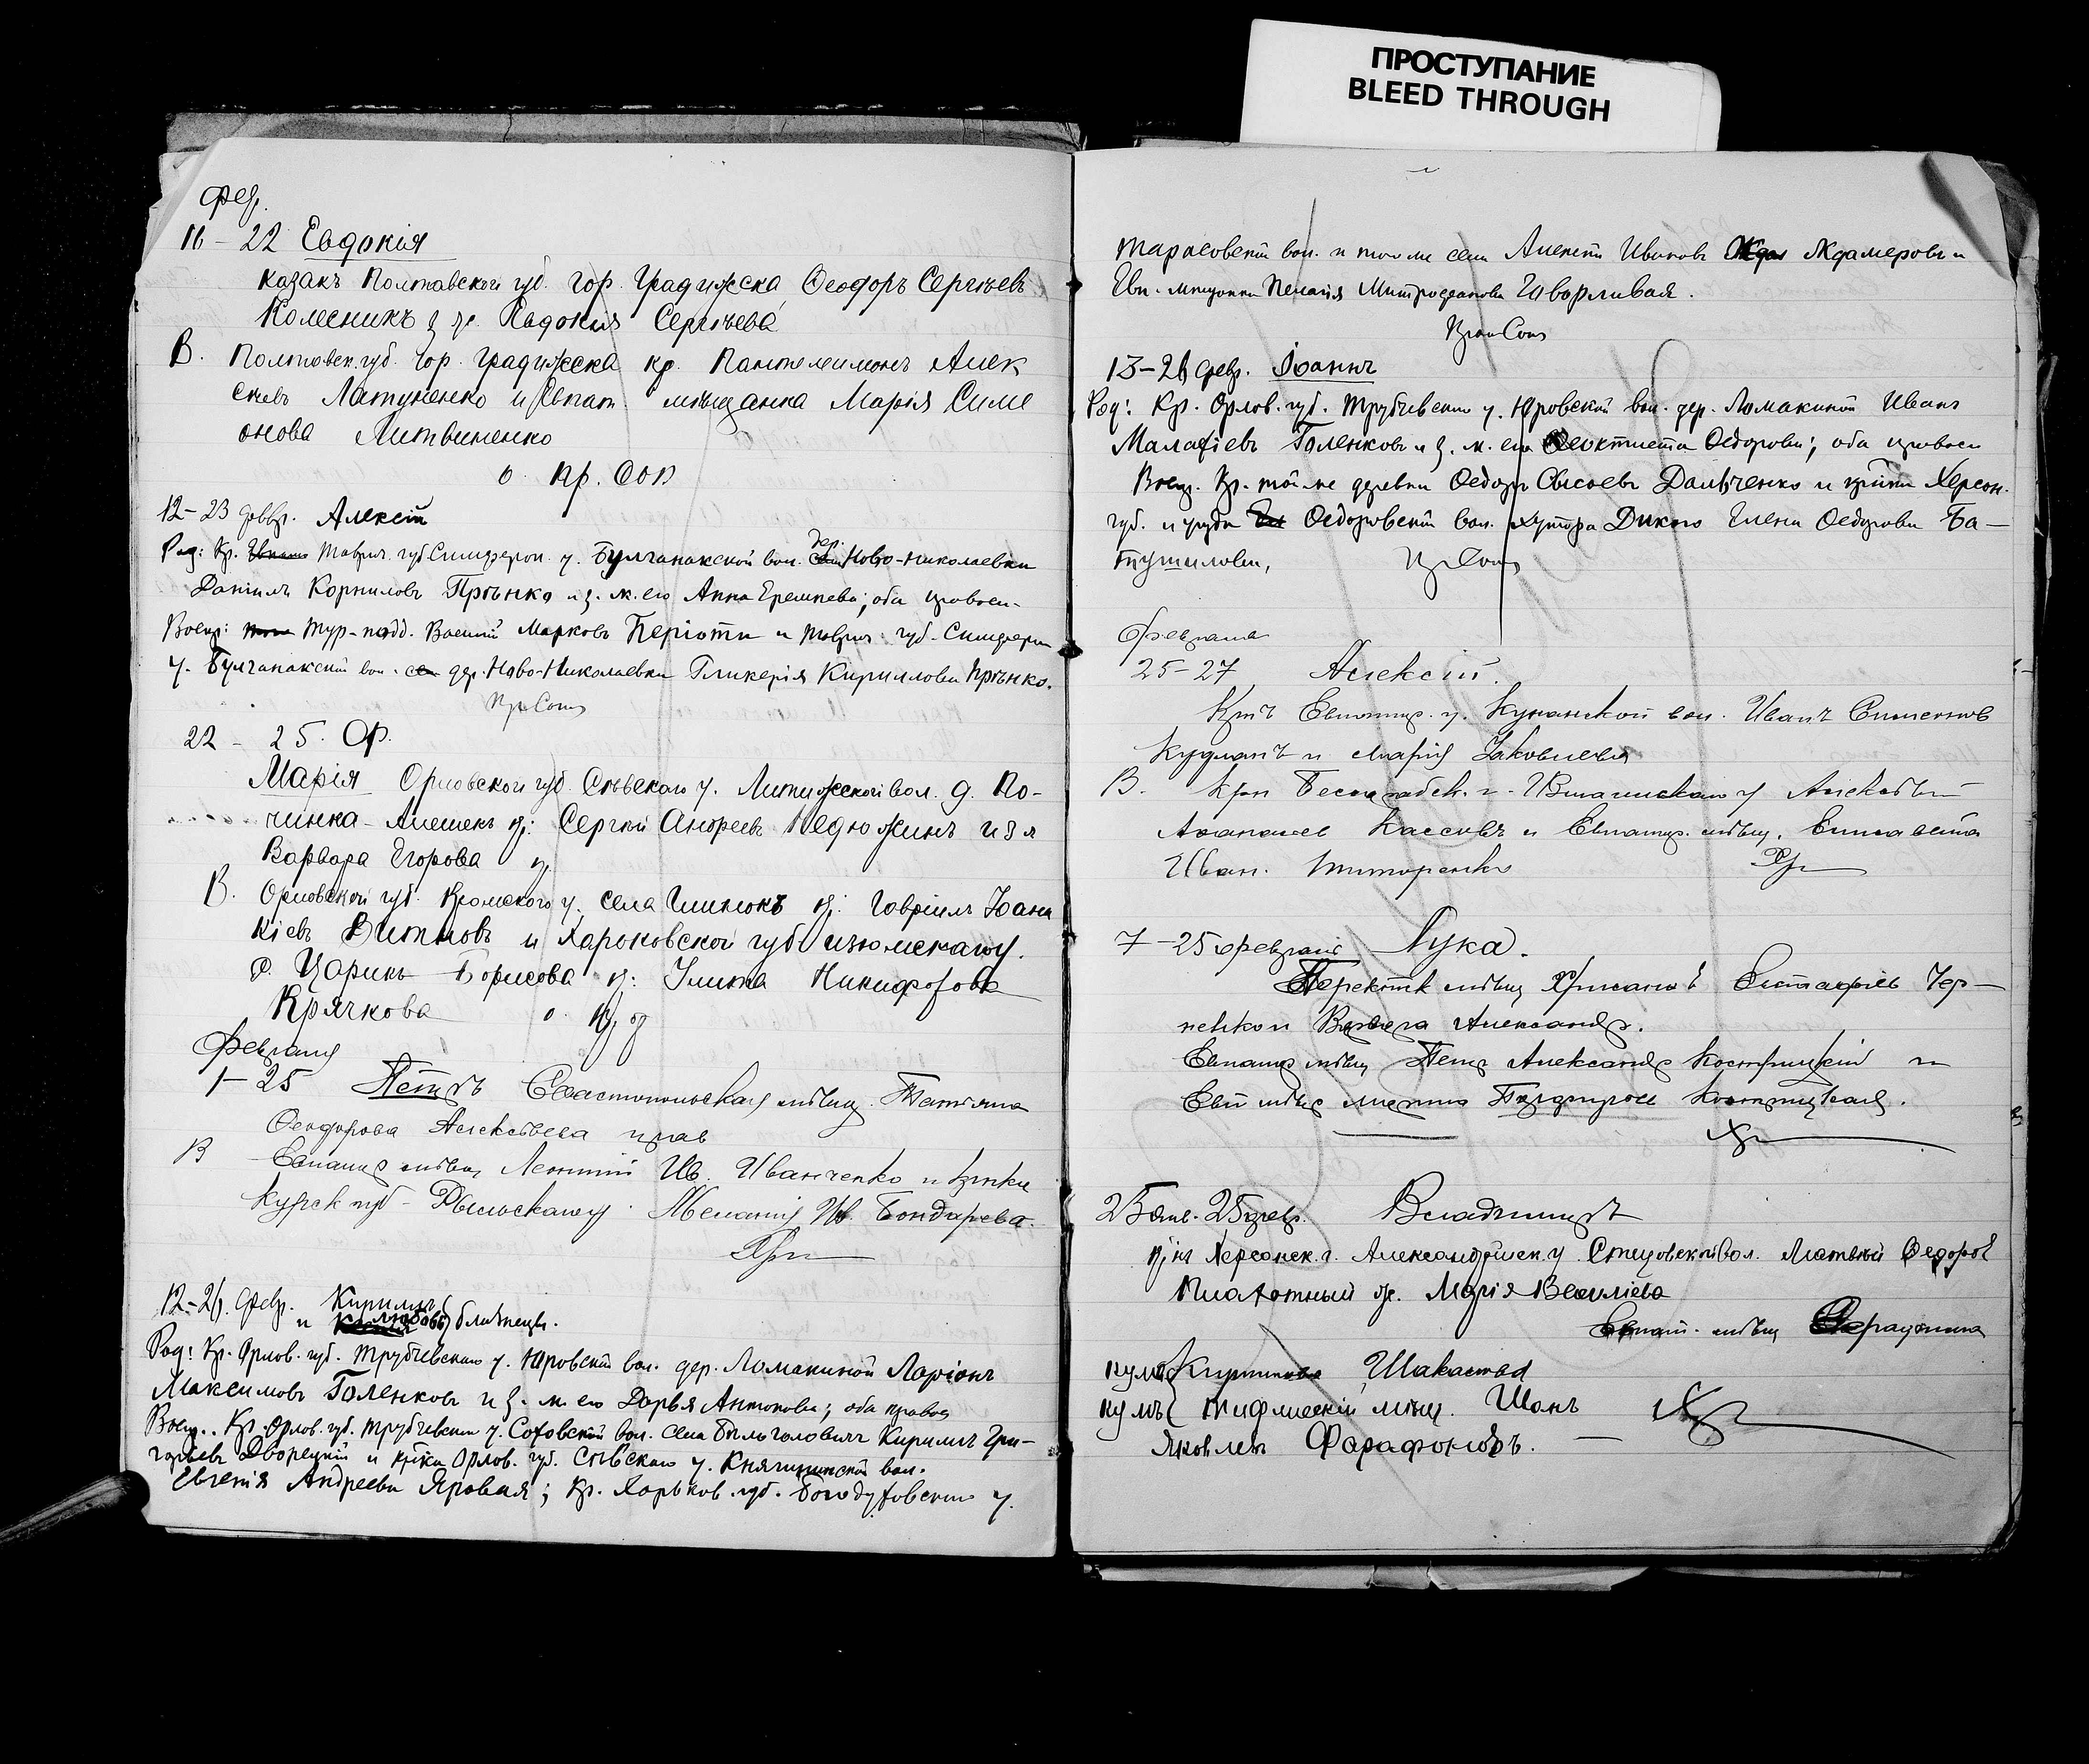 ПРОСТУПАНИЕ
BLEED THROUGH
Фев.
16 – 22 Евдокія
казакъ Полтавской губ. гор. Градижска Ѳеодоръ Сергѣевъ
Колесникъ з. ж. Евдокия Сергѣева
В. Полтавск. губ. гор. Градижска кр. Пантелеимонъ Алек
сѣевъ Латуненко и Евпат. мѣщанка Марія Симе
онова Литвиненко
о. пр. Соп
12–23 февр. Алексѣй
Род: Кр. Таврич. губ. Симфероп. у. Булганакской вол. дер. Ново-Николаевки
Даніилъ Корниловъ Прѣнко и з. ж. его Анна Еремѣева; оба правосл.
Воспр: Тур-подд. Василій Марковъ Періоти и Таврич. губ. Симфероп
у. Булганакской вол. дер. Ново-Николаевки Гликерія Кириллова Прѣнко.
22 – 25. Ф.
Марія Орловской губ. Сѣвскаго у. Литижской вол. д. По-
чинка-Алешекъ кр: Сергѣй Андреевъ и з ж
Варвара Егорова
В. Орловской губ. Кромскаго у. села кр: Гавріилъ Іоана
кіевъ и Харьковской губ. Изюмскаго у.
с. Царинъ Борисова кр: Улита Никифорова
Крячкова о.
Февраля
1–25 Петръ Севастопольская мѣщ. Татьяна
Ѳеодорова Алексѣева прав
В Евпатор мѣщ Леонтій Ив. Иванченко и кр-нка
Курск губ – Рыльскаго у. Меланія Ив. Бондарева.
12–26. Февр. Кириллъ
и Любовь близнецы.
Род: Кр. Орлов. губ. Трубчевскаго у. Юровской вол. дер. Ломакиной Ларіонъ
Максимовъ Голенковъ и з. ж. его Дарья Антонова; оба правосл
Воспр.. Кр. Орлов. губ. Трубчевскаго у. вол. села Кириллъ Гри-
горьевъ Дворецкій и кр-нка Орлов. губ. Сѣвскаго у. Княгининской вол.
Евгенія Андреева Яровая; кр. Харьков. губ. Богодуховскаго у.
Тарасовской вол. и того же села Алексѣй Ивановъ и
Евп. мѣщанка Пелагія Митрофанова Говорливая.
13–26 февр. Іоаннъ
Род: Кр. Орлов. губ. Трубчевскаго у. Юровской вол. дер. Ломакиной Иванъ
Малафіевъ Голенковъ и з. ж. его Ѳеоктиста Ѳедорова; оба правосл
Воспр. Кр. той же деревни Ѳедоръ Сысоевъ Данченко и кр-нка Херсон.
губ. и уѣзда Ѳедоровской вол. хутора Дикого Елена Ѳедорова Ба-
тушилова,
Февраля
25–27 Алексій.
Кр-нъ Евпатор. у. Курманской вол. Иванъ Симеонов
Кудланъ и Марія Іаковлева
В. Кр-нъ Бессарабск. г. у Алексѣй
Аѳанасьев и Евпатор. мѣщ. Елисавета
Иван. Титоренко
7 – 25 февраля Лука.
Перекопск мѣщ Хрисанѳъ Евстафіевъ Чер–
ненко и Варвара Александр.
Евпатор мѣщ Петръ Александр Кострицкій и
Евп мѣщ
25 янв. 25 февр. Владиміръ
Кр-нъ Херсонск. г. Александрійск. у. Стецовской вол. Матвѣй Ѳедоров
Платотный ж. Марія Васильева
Евпат. мѣщ
кума
кумъ Тифлисскій мѣщ. Иванъ
Яковлевъ Фарафоновъ. —